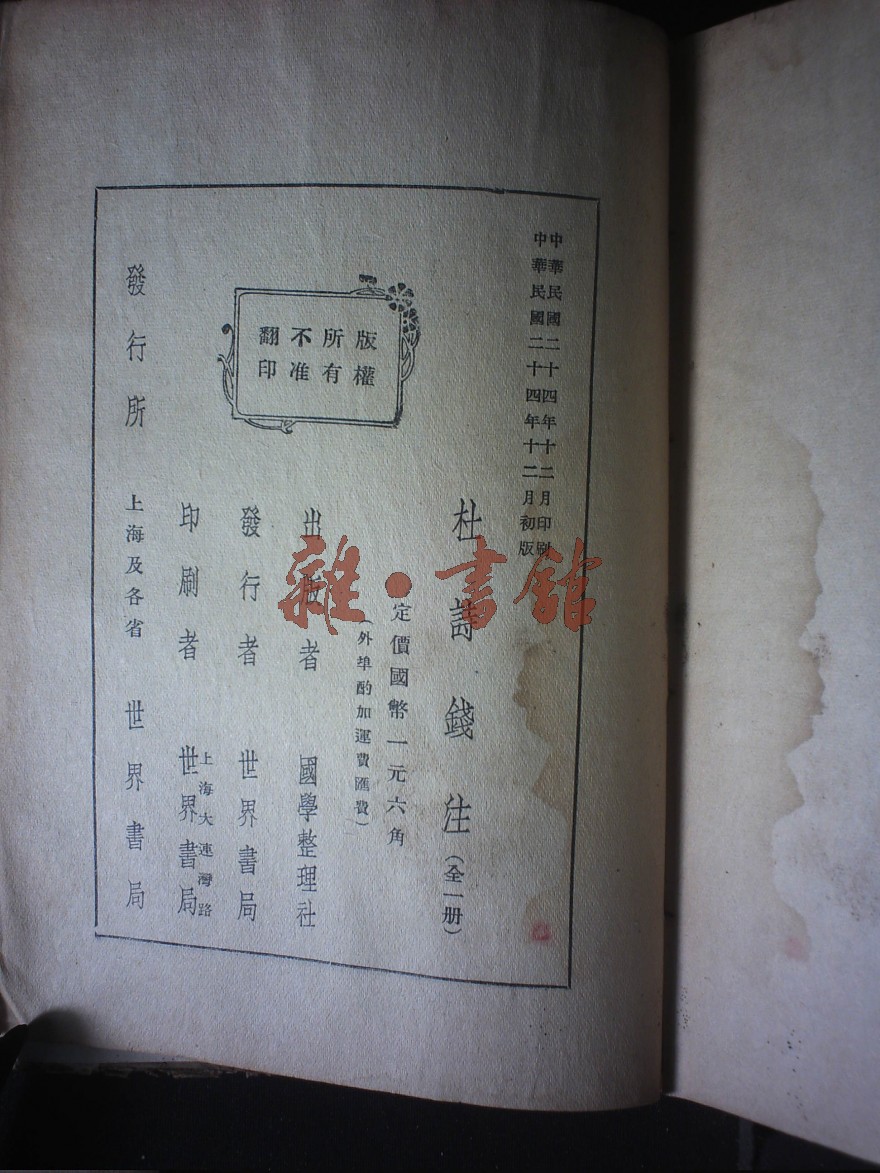 中華民國二十四年十二月印刷
中華民國二十四年十二月初版
杜詩錢注(全一册)
定價國幣一元六角
(外埠酌加運費匯費)
版權
所有
不准
翻印
出版者 國學整理社
發行者 世界書局
上海大連灣路
印刷者 世界書局
發行所 上海及各省 世界書局
雜·書館